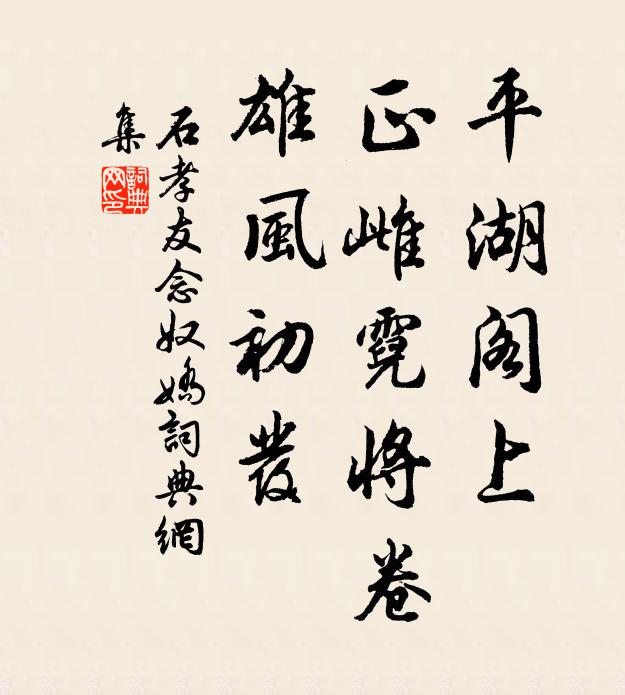 平湖阁上
正雌霓將卷
雄風初發
石孝友念奴嬌詞典網
集
詞典網印